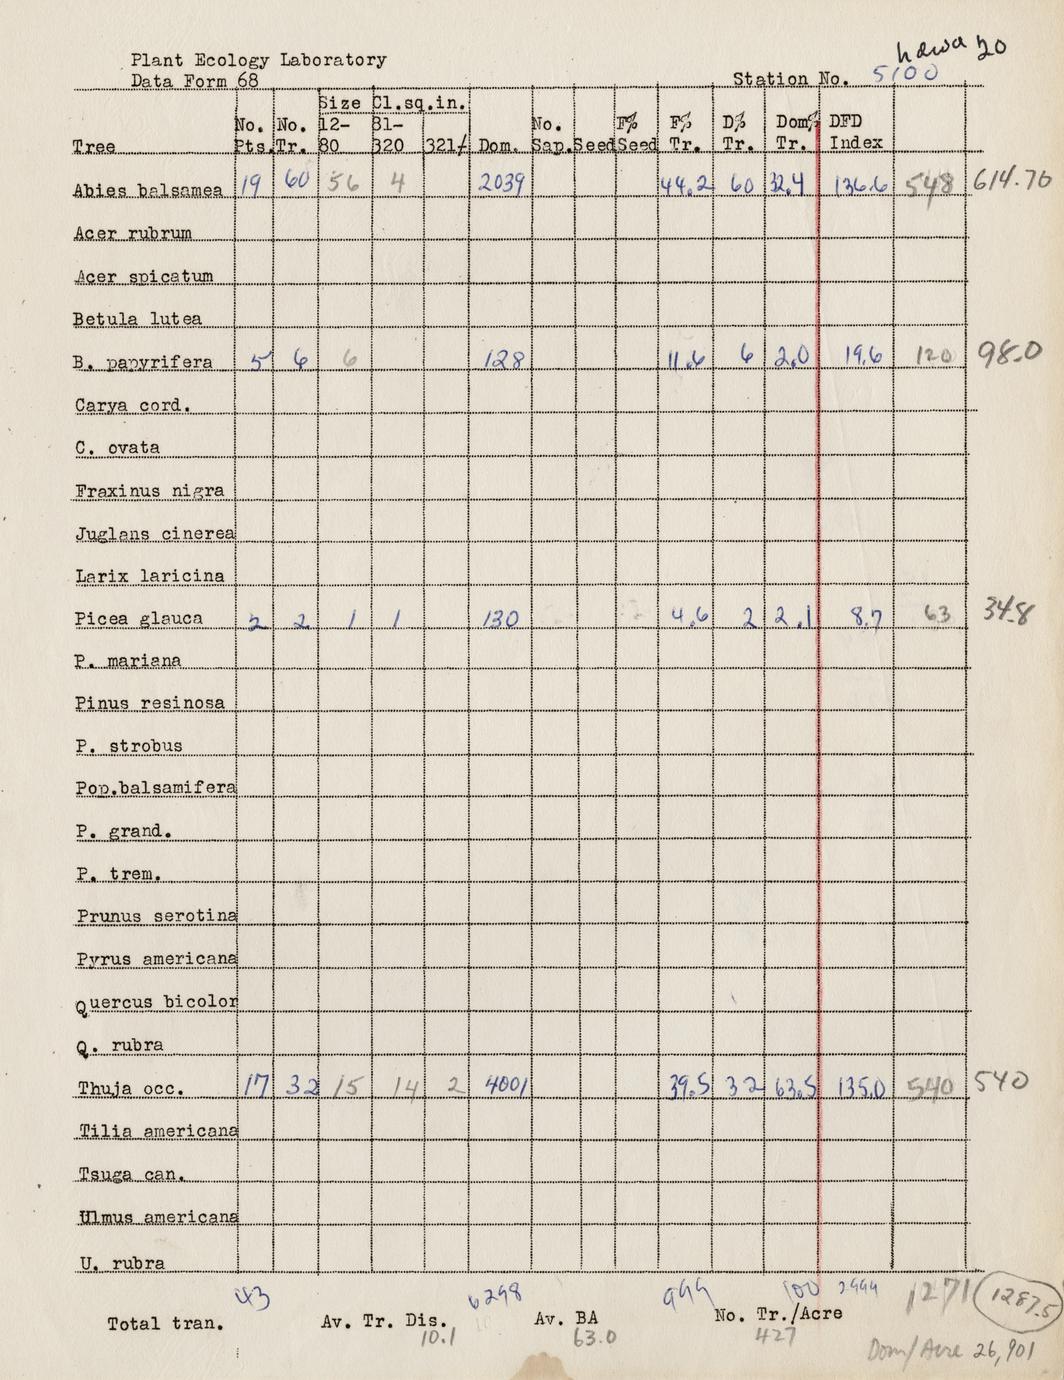 Plant Ecology Laboratory
Data Form 68
20
Station No. 5100
Size Cl.sq.in.
Tree No. Pts. No. Tr. 12-80 81-320 321/ Dom. No. Sap. Seed F% Seed F% Tr. D% Tr. Dom% Tr. DFD Index
Abies balsamea 19 60 56 4 2039 44.2 60 32.4 136.6 548 614.70
Acer rubrum
Acer spicatum
Betula lutea
B. papyrifera 5 6 6 128 11.6 6 2.0 19.6 120 98.0
Carya cord.
C. ovata
Fraxinus nigra
Juglans cinerea
Larix laricina
Picea glauca 2 2 1 1 130 4.6 2 2.1 8.7 63 34.8
P. mariana
Pinus resinosa
P. strobus
Pop.balsamifera
P. grand.
P. trem.
Prunus serotina
Pyrus americana
Quercus bicolor
Q. rubra
Thuja occ. 17 32 15 14 2 4001 39.5 32 63.5 135.0 540 540
Tilia americana
Tsuga can.
Ulmus americana
U. rubra
43 6298 999 100 2999 1271 1287.5
Total tran. Av. Tr. Dis. 10.1 Av. BA 63.0 No. Tr./Acre 427
Dom/Acre 26,901